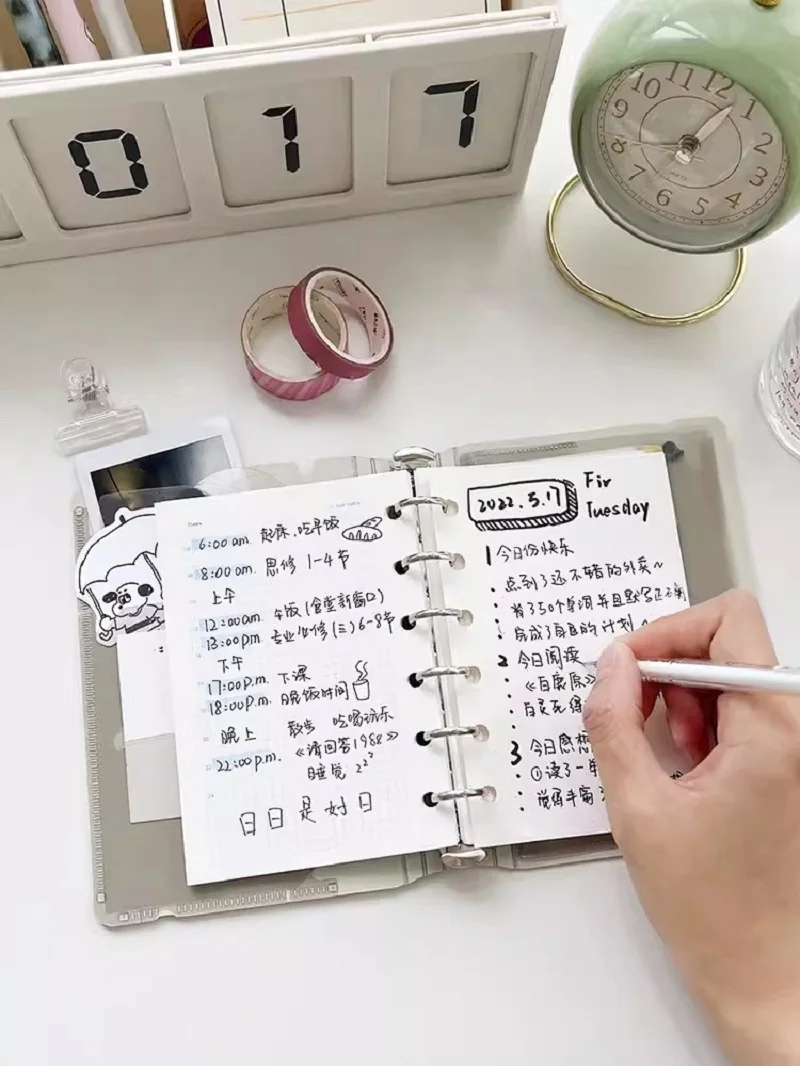 0 1 7
10 11 12 1 2 3 4 5 6 7 8 9
Date
6:00 am. 起床、吃早饭
8:00 am. 思修 1-4节
上午
12:00am. 午饭(食堂新窗口)
13:00pm. 专业必修(三)6-8节
下午
17:00p.m. 下课
18:00p.m. 晚饭时间
晚上 散步 吃喝玩乐
22:00p.m. 《请回答1988》
睡觉 zzz
日日是好日
2022.5.17
Fir
Tuesday
1 今日份快乐
· 点到了还不错的外卖~
· 背了50个单词并且默写
· 完成了自己的计划
2 今日阅读
· 《白鹿原》
·
3 今日感想
· ①读了一
· 觉得